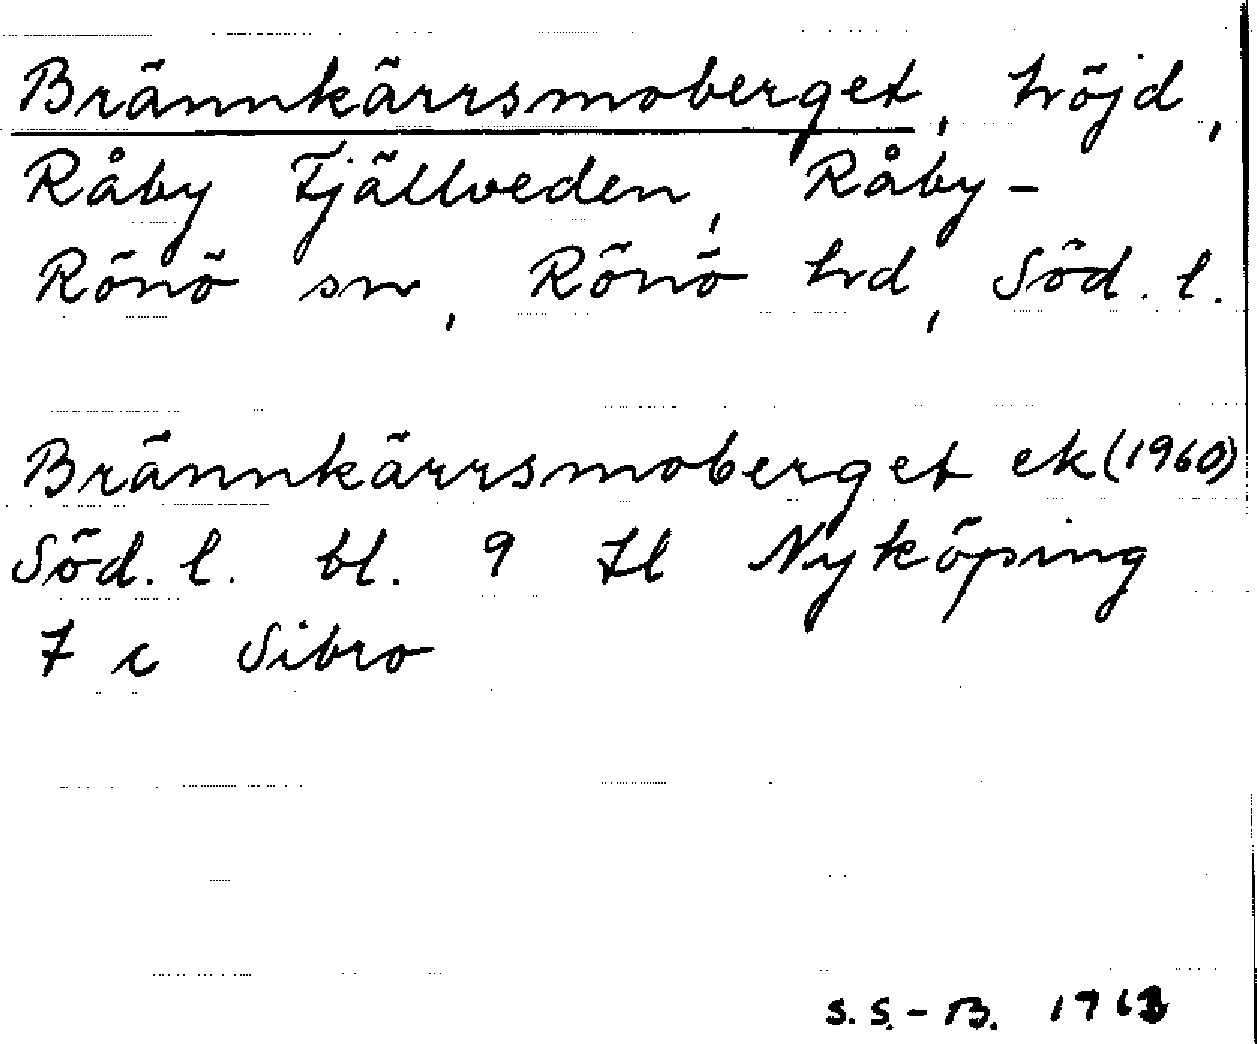 Brännkärrsmoberget, höjd,
Råby Fjällveden, Råby-
Rönö sn, Rönö hd, Söd. l.
Brännkärrsmoberget ek (1960)
Söd. l. bl. 9 Il Nyköping
7 c Sibro
S.S.-B. 1963